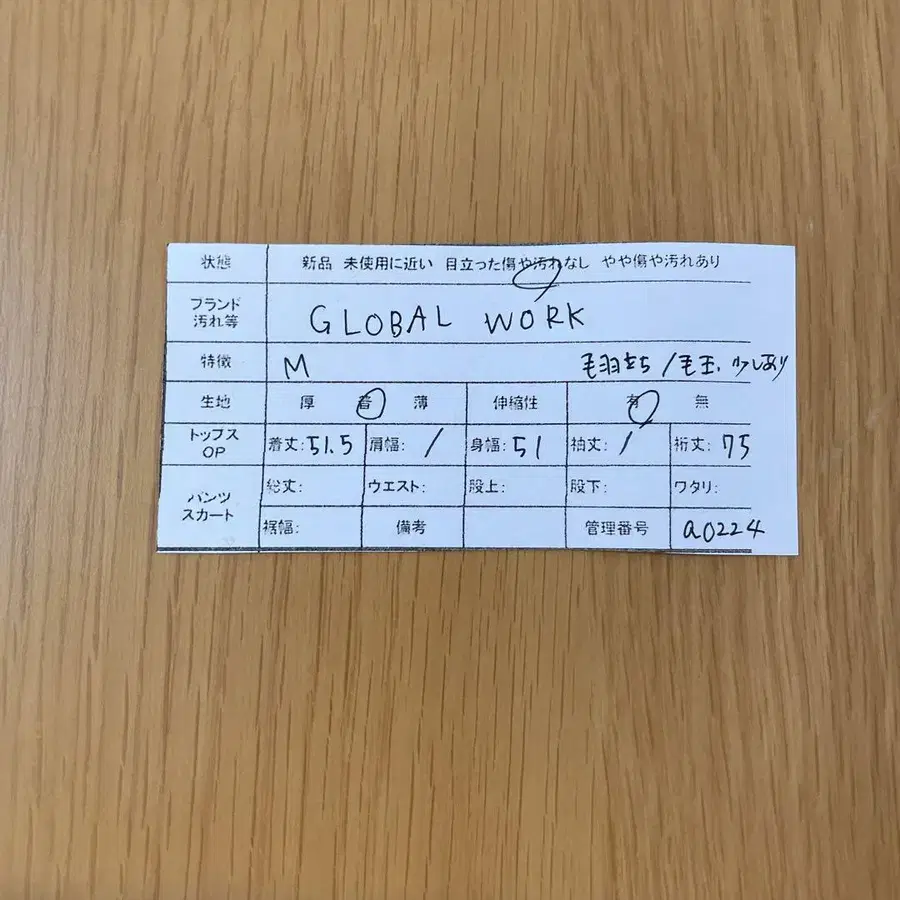 状態 新品 未使用に近い 目立った傷や汚れなし やや傷や汚れあり
ブランド
汚れ等 GLOBAL WORK
特徴 M 毛羽立ち/毛玉、少しあり
生地 厚 普 薄 伸縮性 有 無
トップス
OP 着丈:51.5 肩幅:/ 身幅:51 袖丈:/ 裄丈:75
パンツ
スカート 総丈: ウエスト: 股上: 股下: ワタリ:
裾幅: 備考 管理番号 a0224